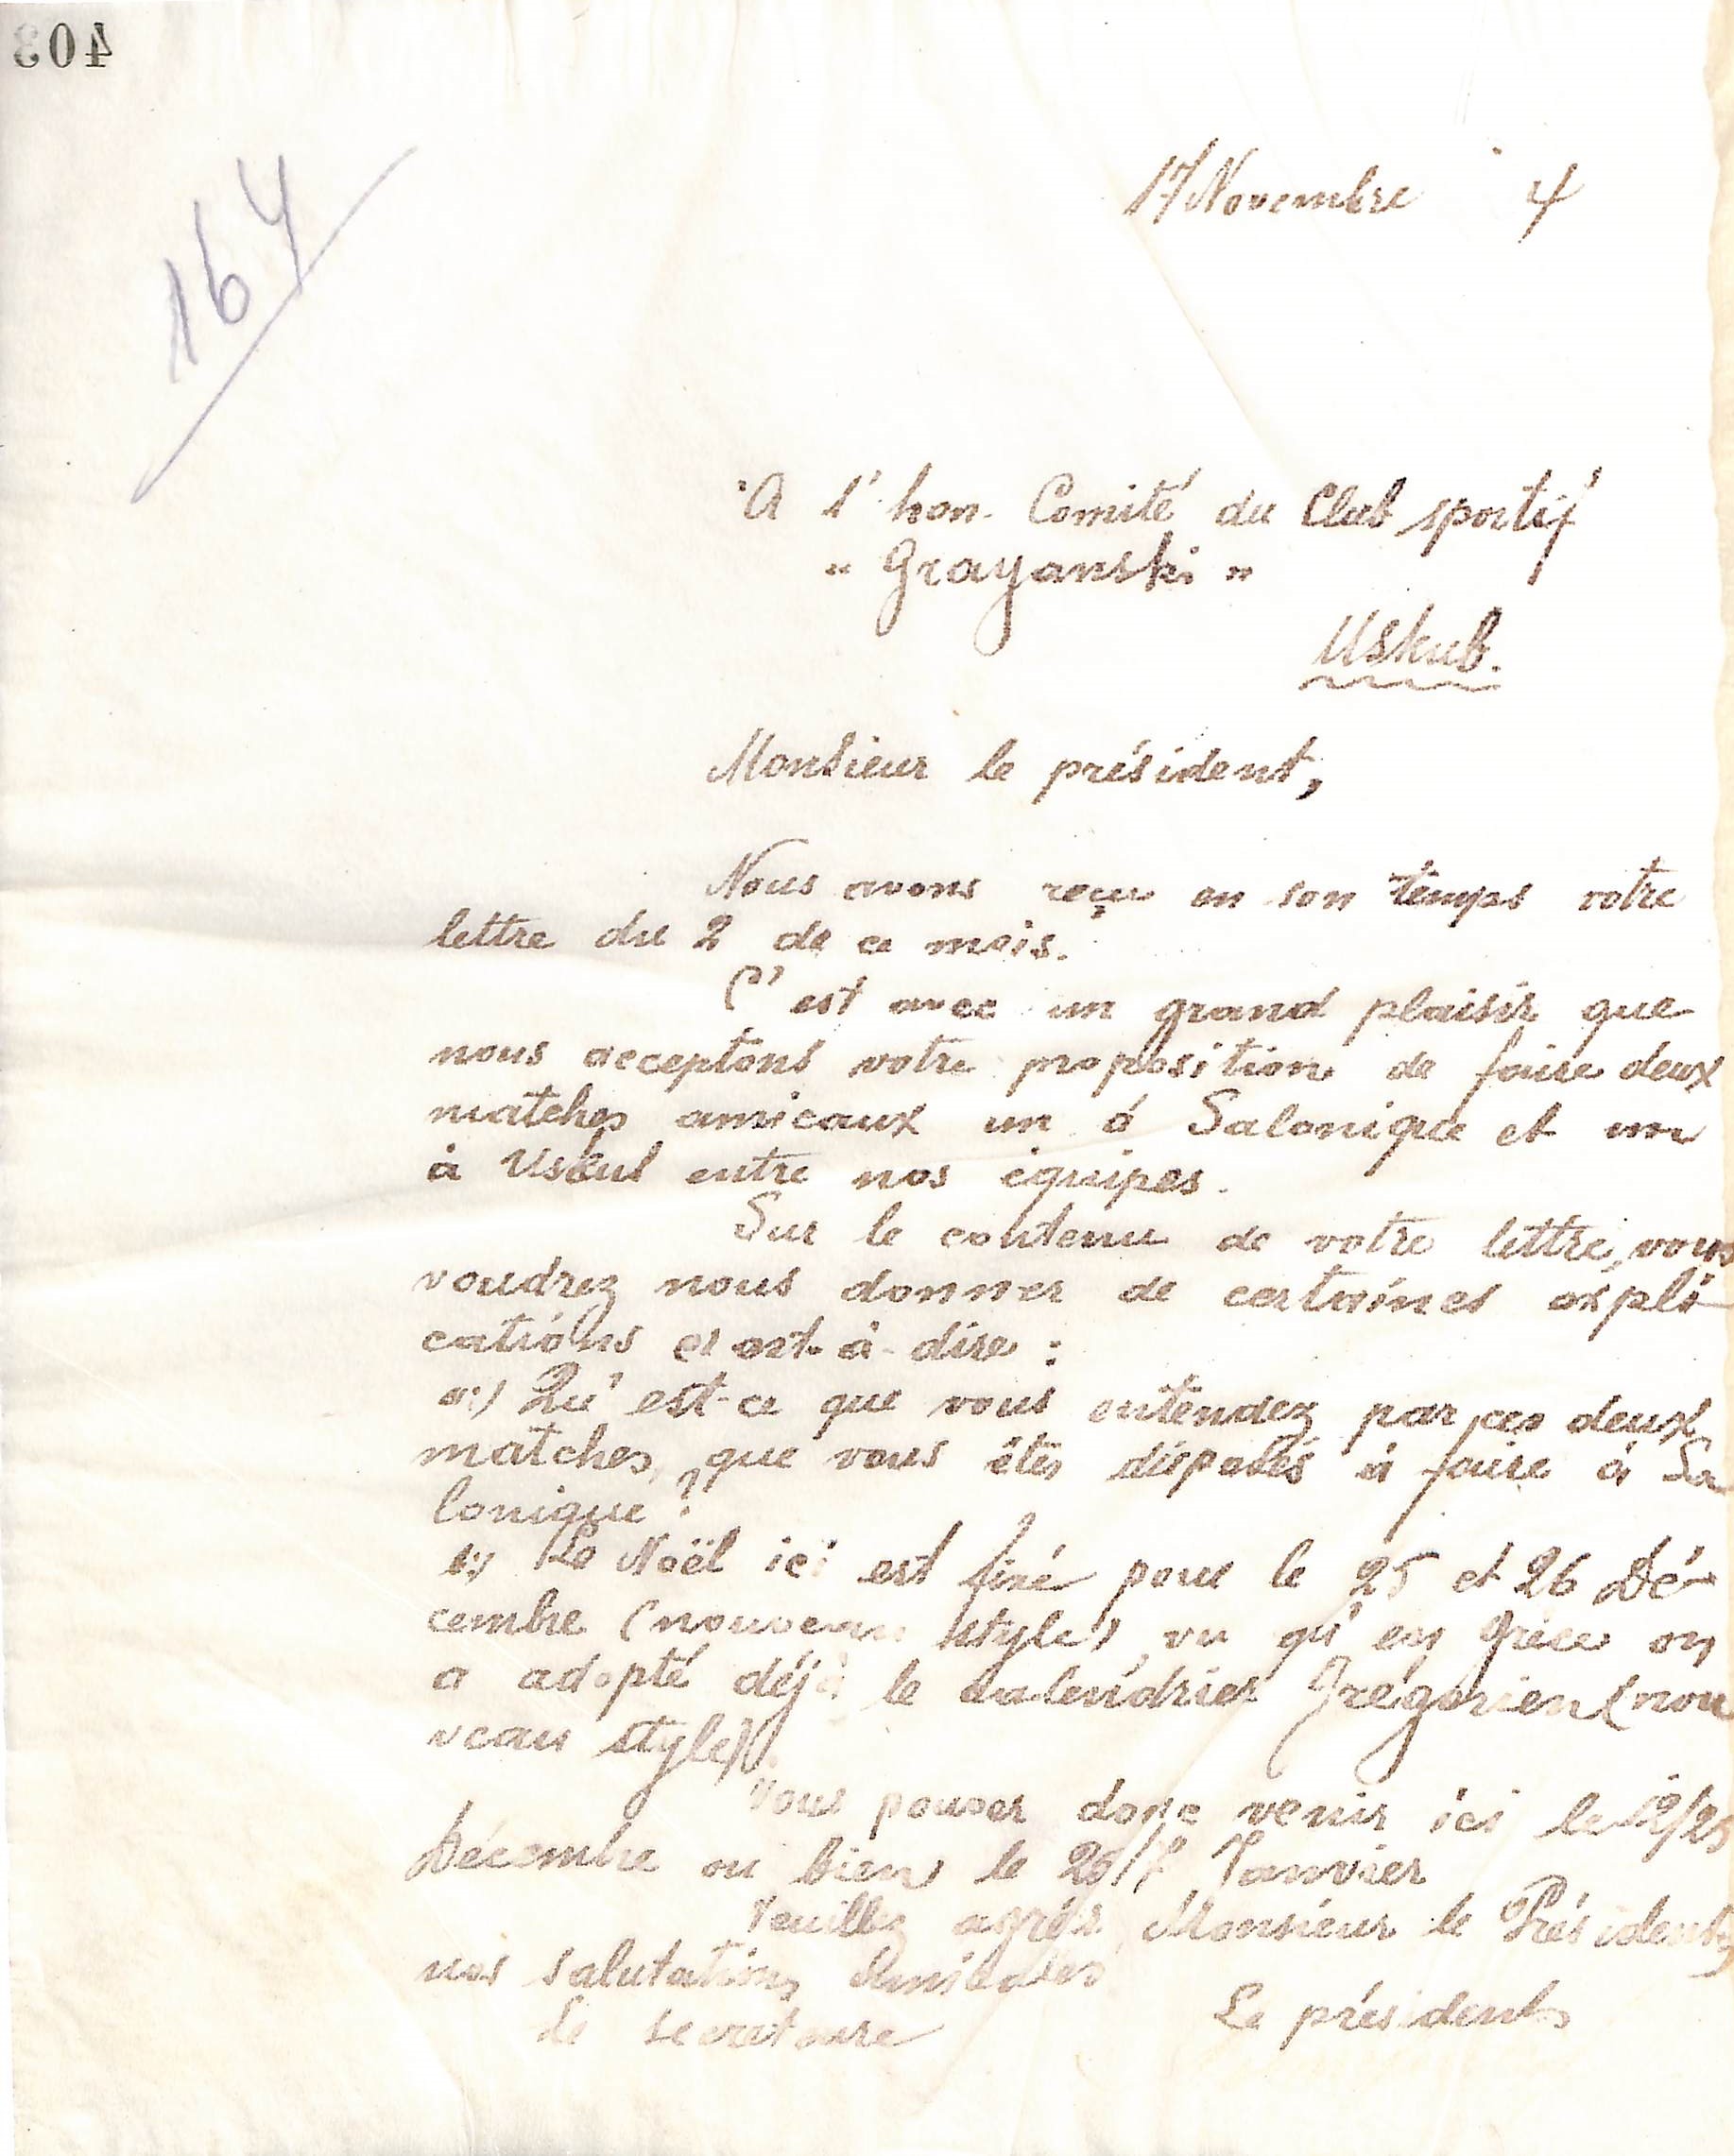 403
164
17 Novembre 4
A l'hon. Comité du Club sportif
" Grayanski "
Uskub.
Monsieur le président,
Nous avons reçu en son temps votre
lettre du 2 de ce mois.
C'est avec un grand plaisir que
nous acceptons votre proposition de faire deux
matches amicaux un à Salonique et un
à Uskub entre nos équipes.
Sur le contenu de votre lettre, vous
voudrez nous donner de certaines expli
cations c'est-à-dire :
a) Qu'est-ce que vous entendez par ces deux
matches, que vous êtes disposés à faire à Sa
lonique ?
b) Le Noël ici est fixé pour le 25 et 26 Dé-
cembre (nouveau style), vu qu'en Grèce on
a adopté déjà le calendrier Grégorien (nou
veau style).
Vous pouvez donc venir ici le 12/25
Décembre ou bien le 25/7 Janvier
Veuillez agréer, Monsieur le Président,
nos salutations amicales
Le secretaire Le président